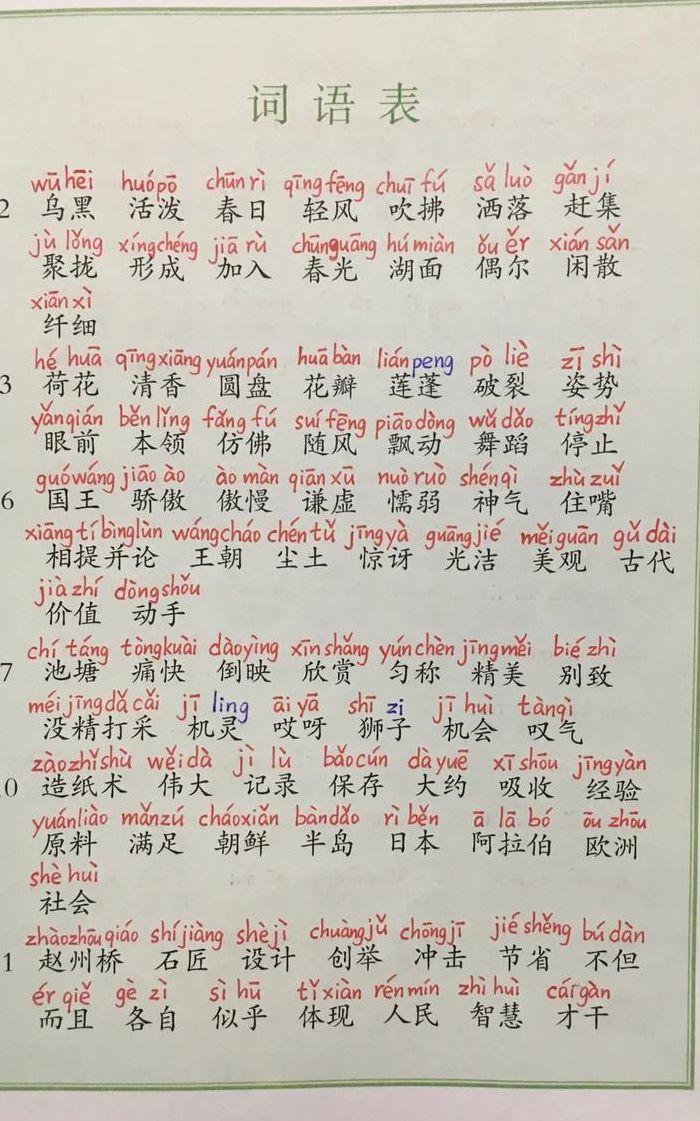 词语表
wūhēi huópō chūnrì qīngfēng chuīfú sǎluò gǎnjí
2 乌黑 活泼 春日 轻风 吹拂 洒落 赶集
jùlǒng xíngchéng jiārù chūnguāng húmiàn ǒuěr xiánsǎn
聚拢 形成 加入 春光 湖面 偶尔 闲散
xiānxì
纤细
héhuā qīngxiāng yuánpán huābàn liánpeng pòliè zīshì
3 荷花 清香 圆盘 花瓣 莲蓬 破裂 姿势
yǎnqián běnlǐng fǎngfú suífēng piāodòng wǔdǎo tíngzhǐ
眼前 本领 仿佛 随风 飘动 舞蹈 停止
guówáng jiāoào àomàn qiānxū nuòruò shénqì zhùzuǐ
6 国王 骄傲 傲慢 谦虚 懦弱 神气 住嘴
xiāngtíbìnglùn wángcháo chéntǔ jīngyà guāngjié měiguān gǔdài
相提并论 王朝 尘土 惊讶 光洁 美观 古代
jiàzhí dòngshǒu
价值 动手
chítáng tòngkuài dàoyìng xīnshǎng yúnchèn jīngměi biézhì
7 池塘 痛快 倒映 欣赏 匀称 精美 别致
méijīngdǎcǎi jīling āiyā shīzi jīhuì tànqì
没精打采 机灵 哎呀 狮子 机会 叹气
zàozhǐshù wěidà jìlù bǎocún dàyuē xīshōu jīngyàn
10 造纸术 伟大 记录 保存 大约 吸收 经验
yuánliào mǎnzú cháoxiǎn bàndǎo rìběn ālābó ōuzhōu
原料 满足 朝鲜 半岛 日本 阿拉伯 欧洲
shèhuì
社会
zhàozhōuqiáo shíjiàng shèjì chuàngjǔ chōngjī jiéshěng búdàn
1 赵州桥 石匠 设计 创举 冲击 节省 不但
érqiě gèzì sìhū tǐxiàn rénmín zhìhuì cáigàn
而且 各自 似乎 体现 人民 智慧 才干